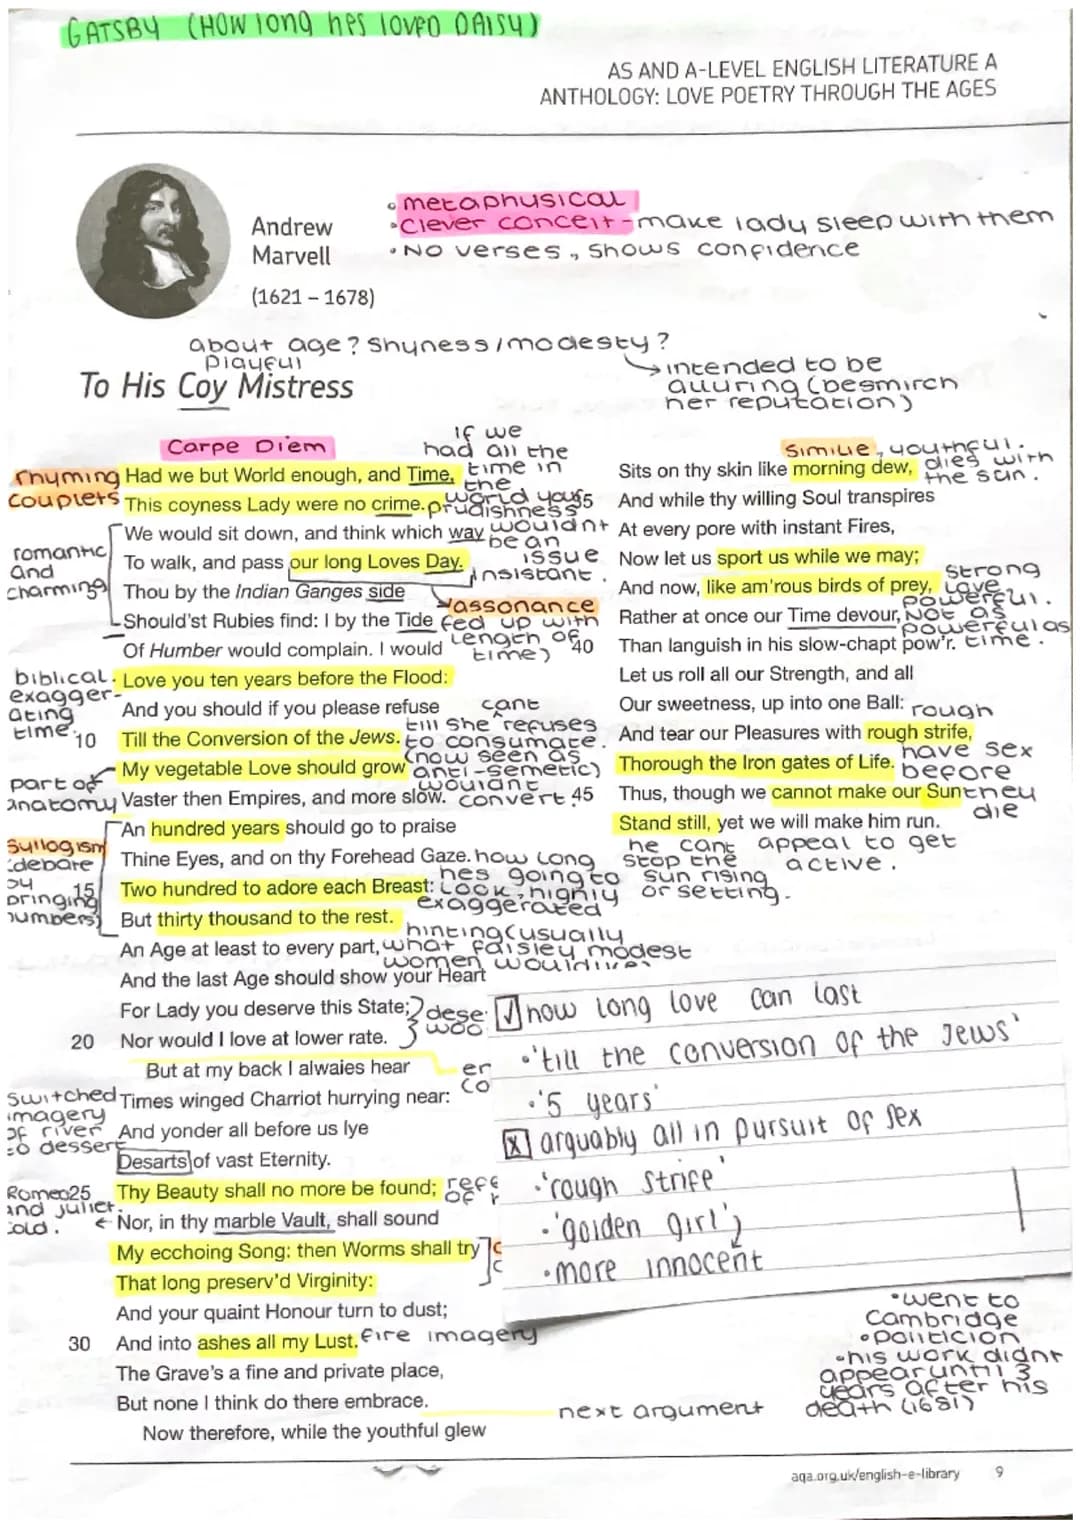 GATSBY (HOW long hes loved DAISY)
AS AND A-LEVEL ENGLISH LITERATURE A
ANTHOLOGY: LOVE POETRY THROUGH THE AGES
Andrew
Marvell
(1621 – 1678)
• metaphysical
• clever conceit - make lady sleep with them
• No verses, shows confidence
about age? Shyness/modesty?
playful
→ intended to be
alluring (besmirch
her reputation)
To His Coy Mistress
Carpe Diem
Rhyming
couplets
if we
had all the
time in
the
world your
prudishness
wouldnt
be an
issue
Had we but World enough, and Time,
This coyness Lady were no crime.
We would sit down, and think which way
To walk, and pass our long Loves Day.
Thou by the Indian Ganges side
Should'st Rubies find: I by the Tide
Of Humber would complain. I would
Love you ten years before the Flood:
And you should if you please refuse
10 Till the Conversion of the Jews.
My vegetable Love should grow
Vaster then Empires, and more slow.
An hundred years should go to praise
Thine Eyes, and on thy Forehead Gaze.
15 Two hundred to adore each Breast:
But thirty thousand to the rest.
An Age at least to every part,
And the last Age should show your Heart
For Lady you deserve this State;
20 Nor would I love at lower rate.
But at my back I alwaies hear
Times winged Charriot hurrying near:
And yonder all before us lye
Desarts of vast Eternity.
25 Thy Beauty shall no more be found;
Nor, in thy marble Vault, shall sound
My ecchoing Song: then Worms shall try
That long preserv'd Virginity:
And your quaint Honour turn to dust;
30 And into ashes all my Lust.
The Grave's a fine and private place,
But none I think do there embrace.
Now therefore, while the youthful glew
romantic
and
charming
insistant.
assonance
fed up with
length of
time)
biblical.
exagger-
ating
time.
cant
till she refuses
to consumate.
(now seen as
anti-semetic)
wouldnt
convert.
part of
anatomy
Syllogism
debate
by
bringing
numbers)
how long
hes going to
look, highly
exaggerated
hinting (usually
what faisley modest
women would
dese
woo
er
co
switched
imagery
of river
to dessert
Romeo
and juliet.
cold.
refe
of
fire imagery
next argument
Simile, youthful.
dies with
the sun.
Sits on thy skin like morning dew,
35 And while thy willing Soul transpires
At every pore with instant Fires,
Now let us sport us while we may;
And now, like am'rous birds of prey,
Rather at once our Time devour,
40 Than languish in his slow-chapt pow'r.
Let us roll all our Strength, and all
Our sweetness, up into one Ball:
And tear our Pleasures with rough strife,
Thorough the Iron gates of Life.
45 Thus, though we cannot make our Sun
Stand still, yet we will make him run.
strong
love
powerful.
Not as
powerful as
time.
rough
have sex
before
they
die
he cant
stop the
sun rising
or setting.
appeal to get
active.
☑ how long love can last
• 'till the conversion of the Jews'
• '5 years'
☒ arguably all in pursuit of sex
• 'rough strife'
• 'golden girl'
• more innocent
• went to
Cambridge
• politicion
• his work didnt
appear until 3
years after his
death (1681)
aqa.org.uk/english-e-library 9